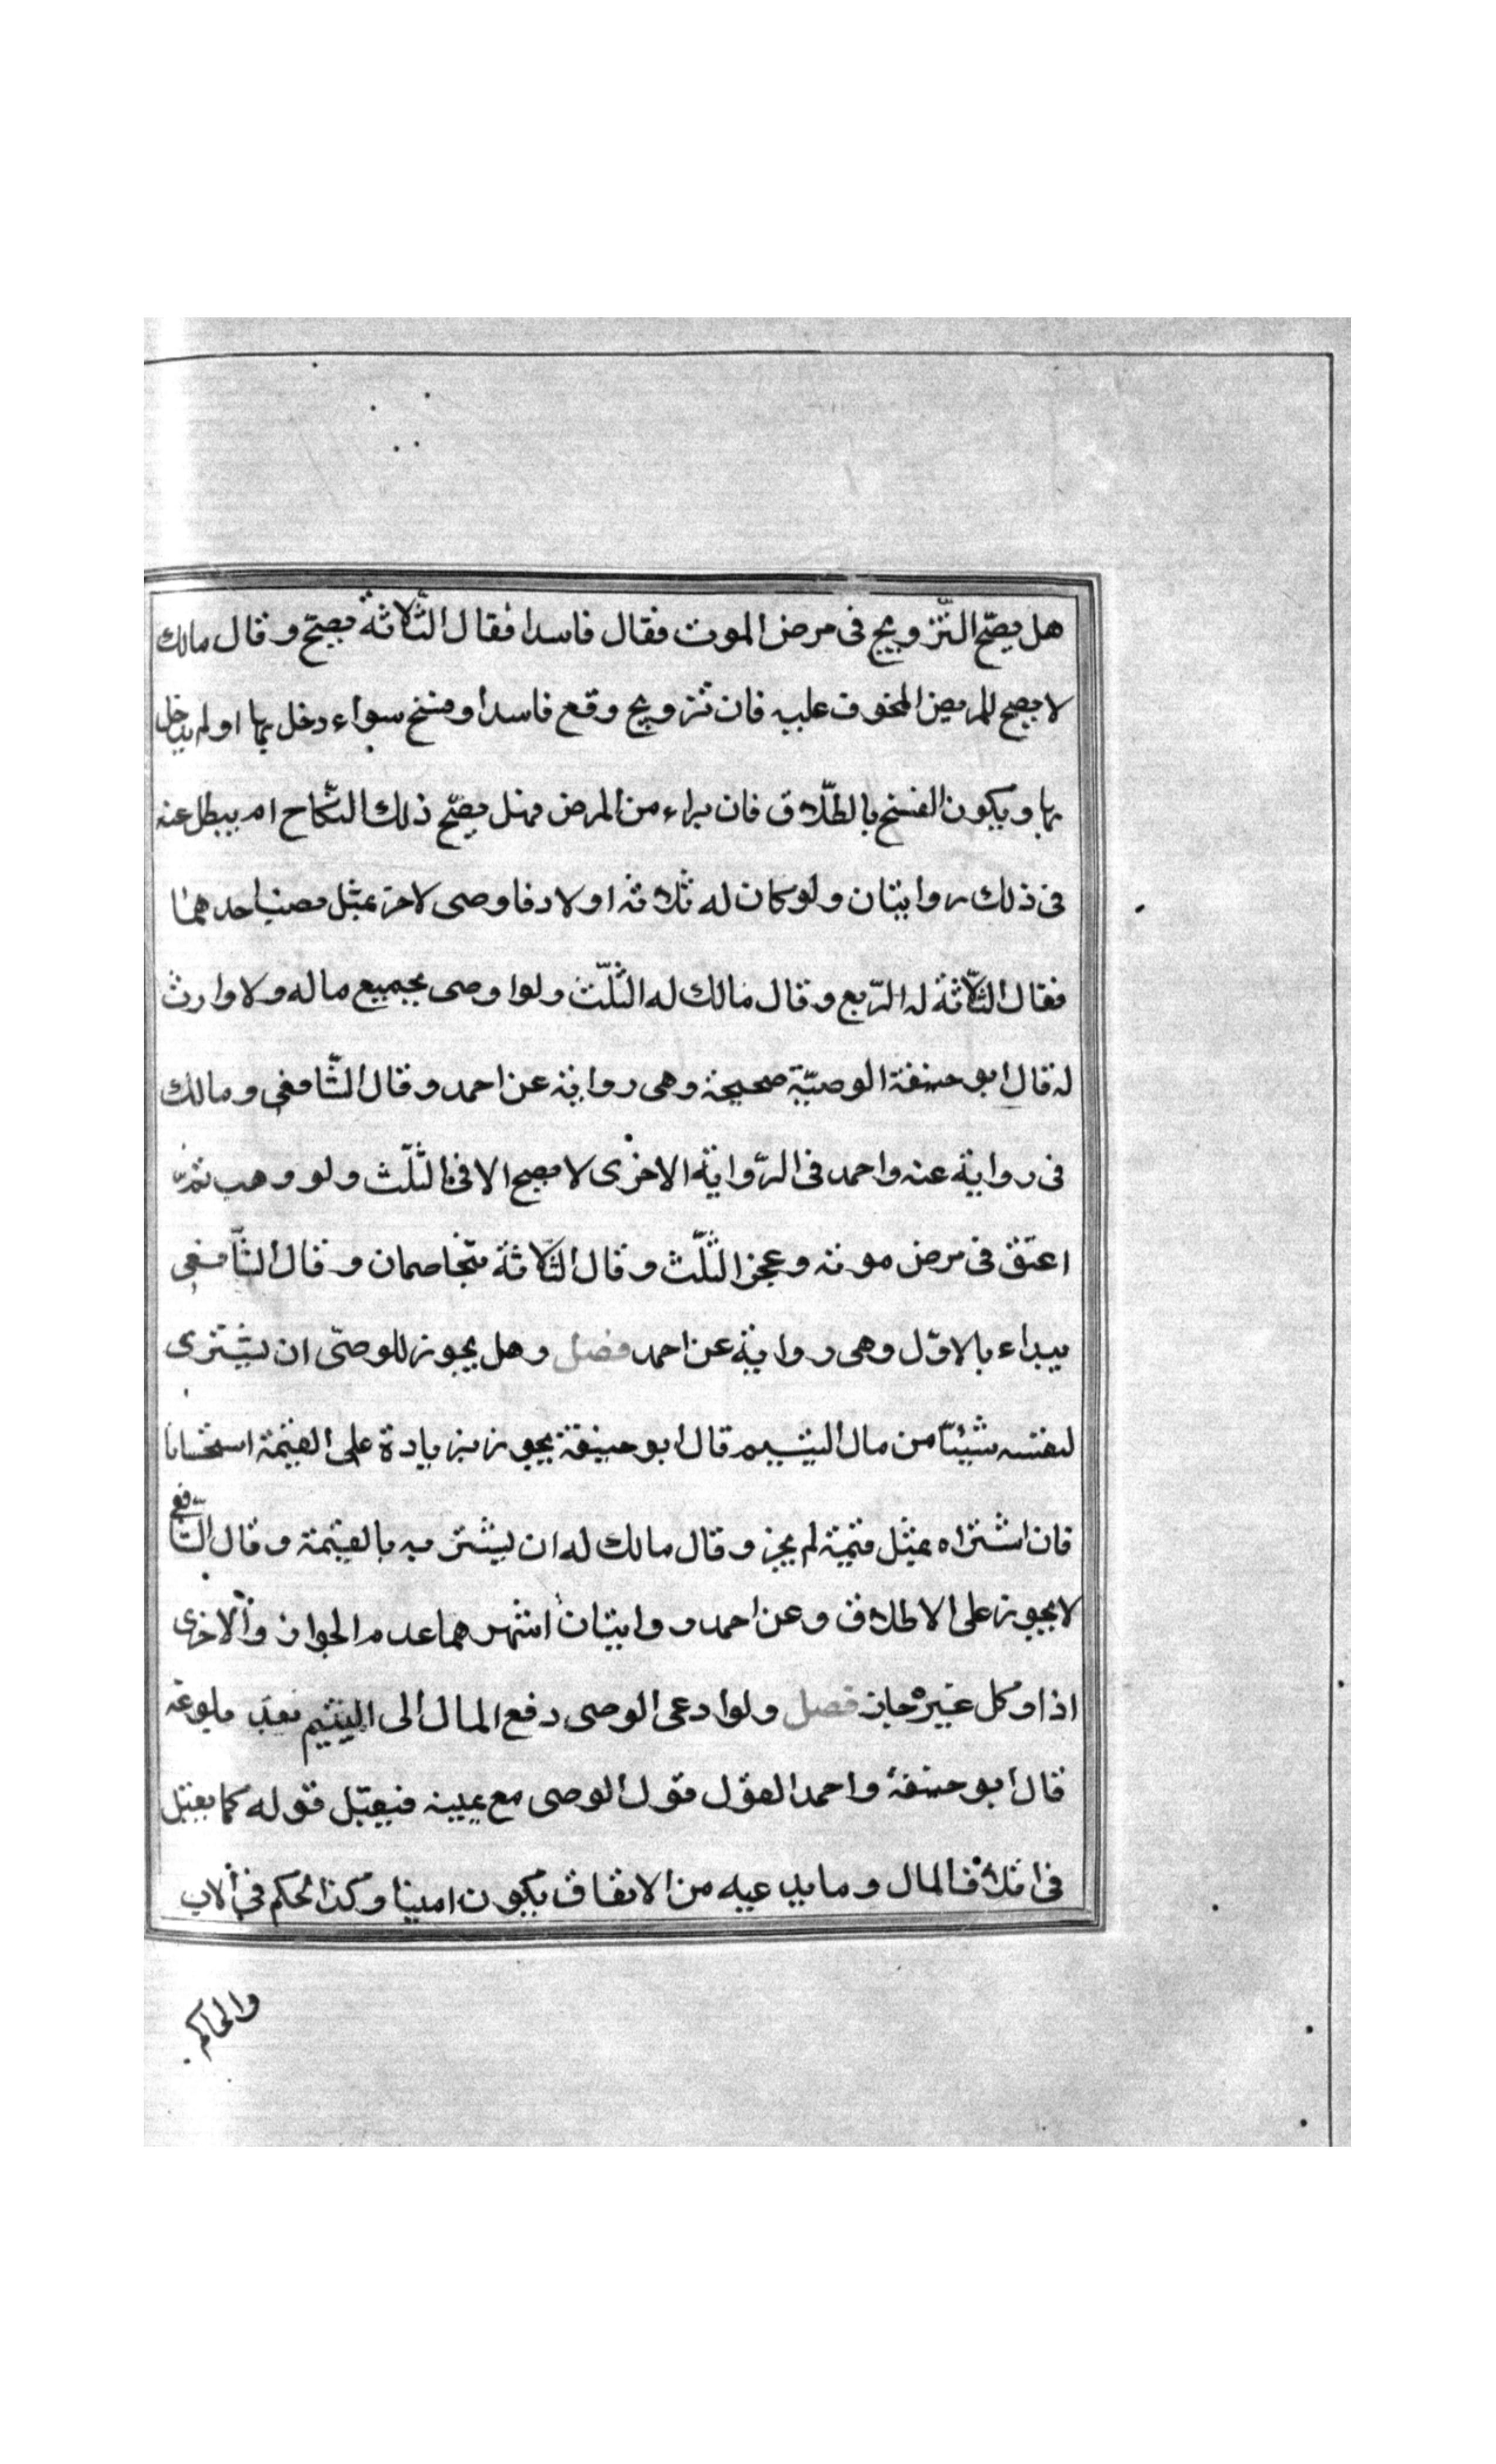 هل يصحّ التّزويج فى مرض الموت فقال فاسدا فقال الثّلاثة يصحّ وقال مالك
لا يصح للمريض المخوف عليه فان تزويج وقع فاسدا وفسخ سواء دخل بها او لم يدخل
بها ويكون الفسخ بالطّلاق فان براء من المرض فهل يصحّ ذلك النّكاح ام يبطل عنه
فى ذلك روايتان ولو كان له ثلاثه اولاد فاوصى لاخر بمثل نصيب احدهما
فقال الثّلاثة له الرّبع وقال مالك له الثّلث ولو اوصى بجميع ماله ولا وارث
له قال ابو حنيفة الوصيّة صحيحة وهى رواية عن احمد وقال الشّافعى ومالك
فى رواية عنه واحمد فى الرّواية الاخرى لا يصح الا فى الثّلث ولو وهب ثمّ
اعتق فى مرض موته وعجز الثّلث وقال الثّلاثة يتخاصمان وقال الشّافعى
يبداء بالاوّل وهى رواية عن احمد فصل وهل يجوز للوصىّ ان يشترى
لنفسه شيئاً من مال اليتيم قال ابو حنيفة يجوز بزيادة على القيمة استحسانا
فان اشتراه بمثل قيمة لم يجز وقال مالك له ان يشتريه بالقيمة وقال الشّافعى
لا يجوز على الاطلاق وعن احمد روايتان اشهرهما عدم الجواز والاخرى
اذا وكل غيره جاز فصل ولو ادعى الوصى دفع المال الى اليتيم بعد بلوغه
قال ابو حنيفة واحمد القول قول الوصى مع يمينه فيقبل قوله كما يقبل
فى اتلاف المال وما يدعيه من الانفاق يكون امينا وكذا الحكم فى الاب
والحاكم